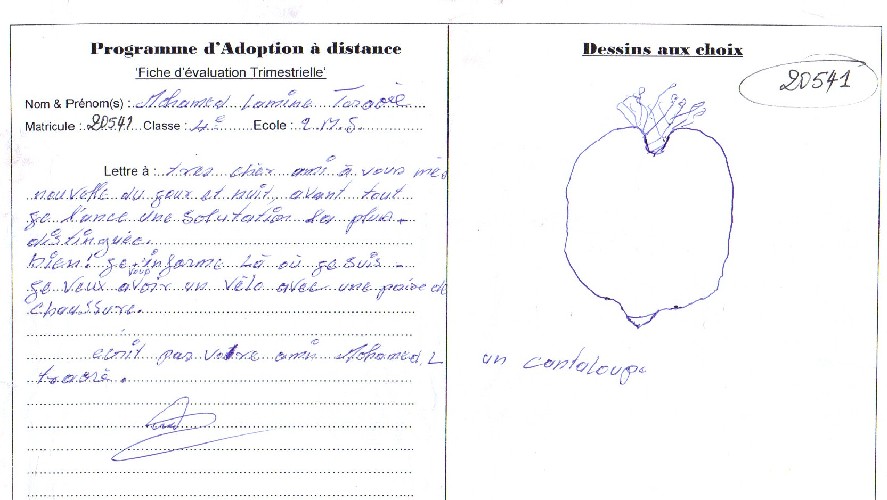 Programme d'Adoption à distance
'Fiche d'évaluation Trimestrielle'
Nom & Prénom(s) : Mohamed Lamine
Matricule : 20541 Classe : 4è Ecole :
Lettre à : tres cher ami à vous mes
nouvelle du jour et nuit, avant tout
je lance une solutation la plus
distinguée.
bien! je vous informe là où je suis
je veux avoir un vélo avec une paire de
chaussure.
ecrit par votre ami Mohamed L
traoré.
Dessins aux choix
20541
un cantaloupe